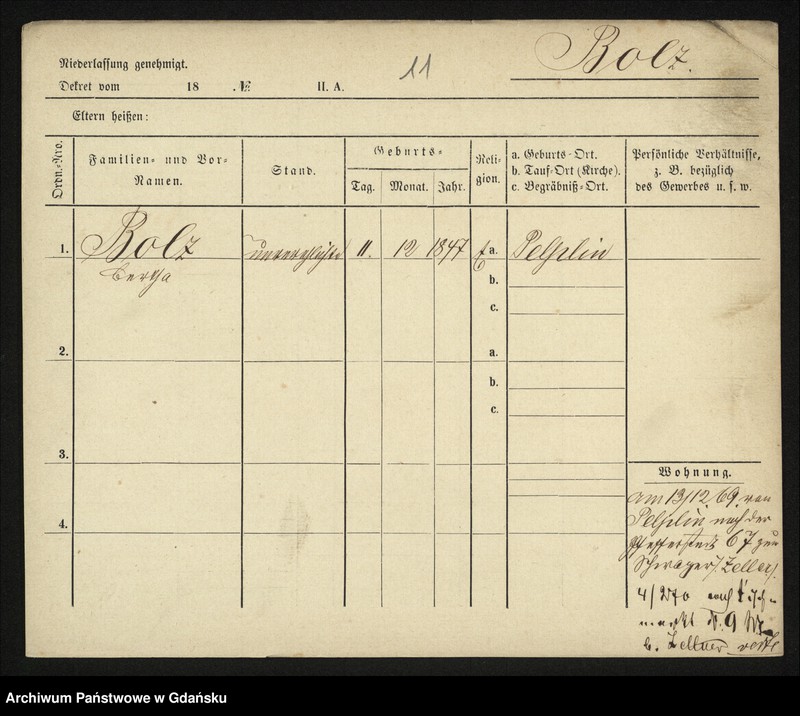 Bolz.
Niederlassung genehmigt.
11
Dekret vom 18 . № II. A.
Eltern heißen:
Ordn.-Nro.
Familien- und Vor-
Namen.
Stand.
Geburts-
Tag. Monat. Jahr.
Reli-
gion.
a. Geburts-Ort.
b. Tauf-Ort (Kirche).
c. Begräbniß-Ort.
Persönliche Verhältnisse,
z. B. bezüglich
des Gewerbes u. s. w.
1. Bolz unverehlicht 11. 12 1847 a. Pelplin
Bertha
b.
c.
2. a.
b.
c.
3.
4.
Wohnung.
am 13/12 69. von
Pelplin nach der
Pfefferstadt 67 zum
Schwager Zeller
4/2 70 nach Fisch-
markt N. 9
b. Zellner
Archiwum Państwowe w Gdańsku